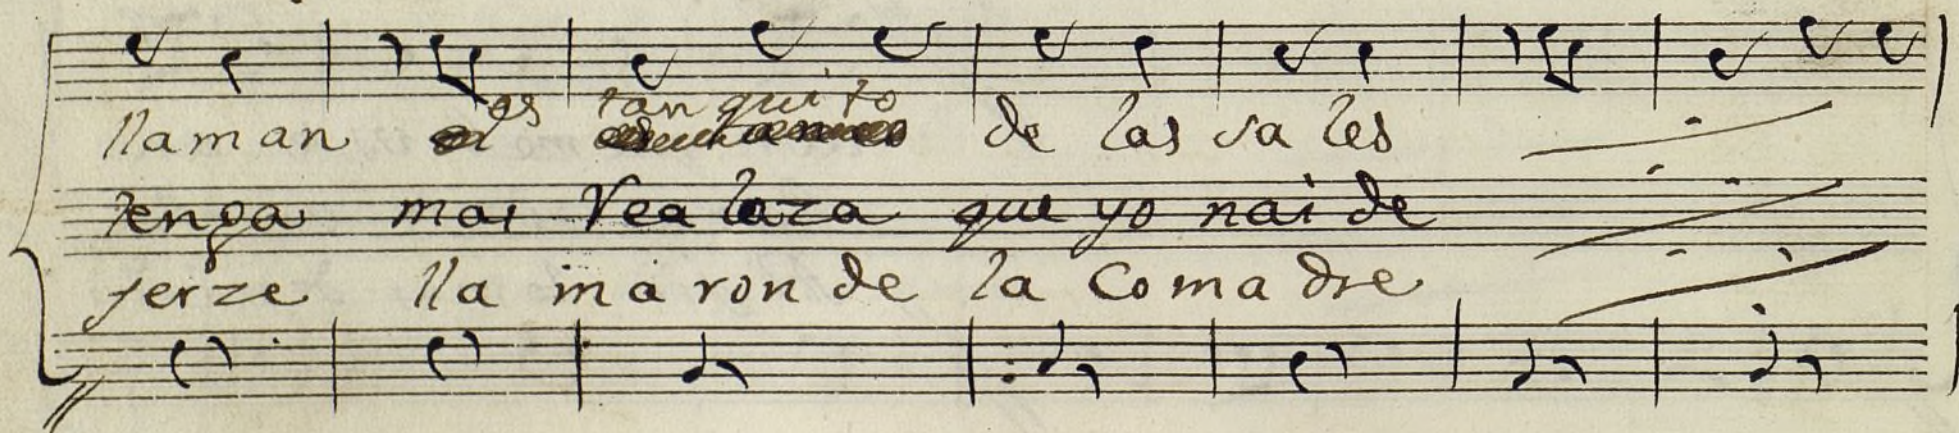 es tan qui to
llaman el de las sa les
tenga mas Vea leza que yo nai de
ferze lla maron de la Coma dre